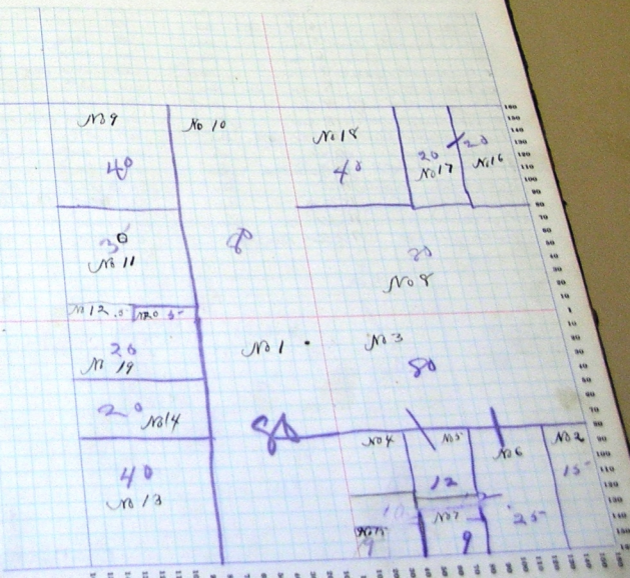 No 9
40
No 10
80
No 18
40
20
No 17
20
No 16
30
No 11
80
No 8
No 12
No 20 5
No 1
No 3
80
20
No 19
20 No 14
80
No 4
No 5
No 6
No 2
15
40
No 13
12
No 7
9
25